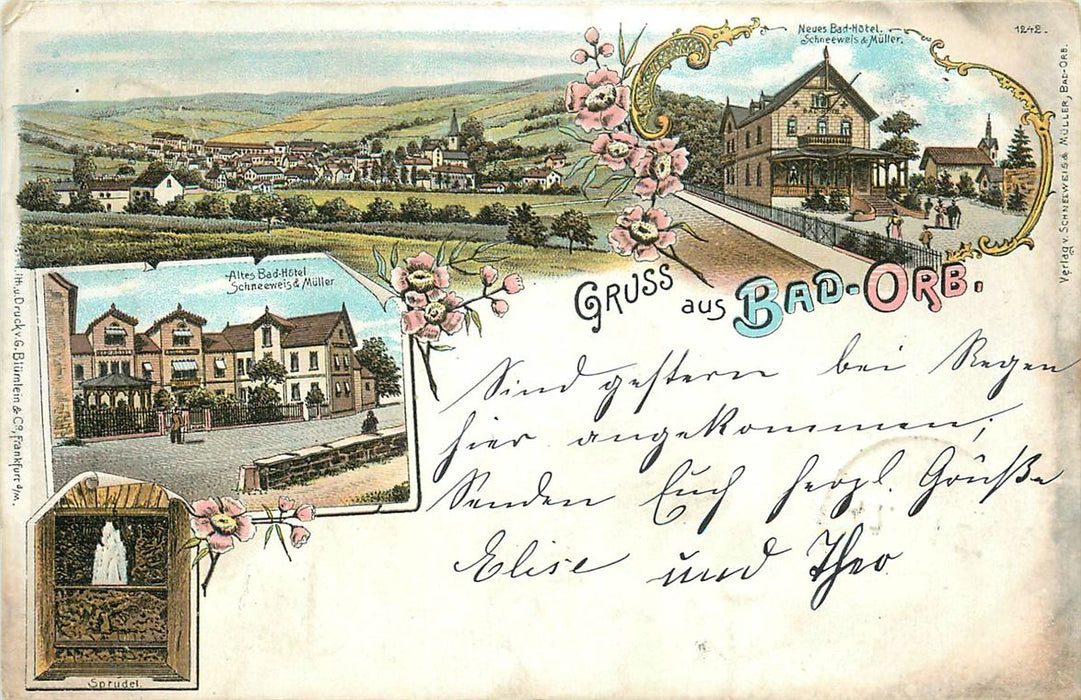 1242.
Neues Bad-Hôtel.
Schneeweis & Müller.
Verlag v. Schneeweis & Müller, Bad-Orb.
Gruss aus Bad-Orb.
Altes Bad-Hôtel
Schneeweis & Müller.
Lith. u. Druck v. G. Blümlein & Co., Frankfurt a/M.
Sind gestern bei Regen
hier angekommen;
Senden Euch herzl. Grüße
Elise und Theo
Sprudel.